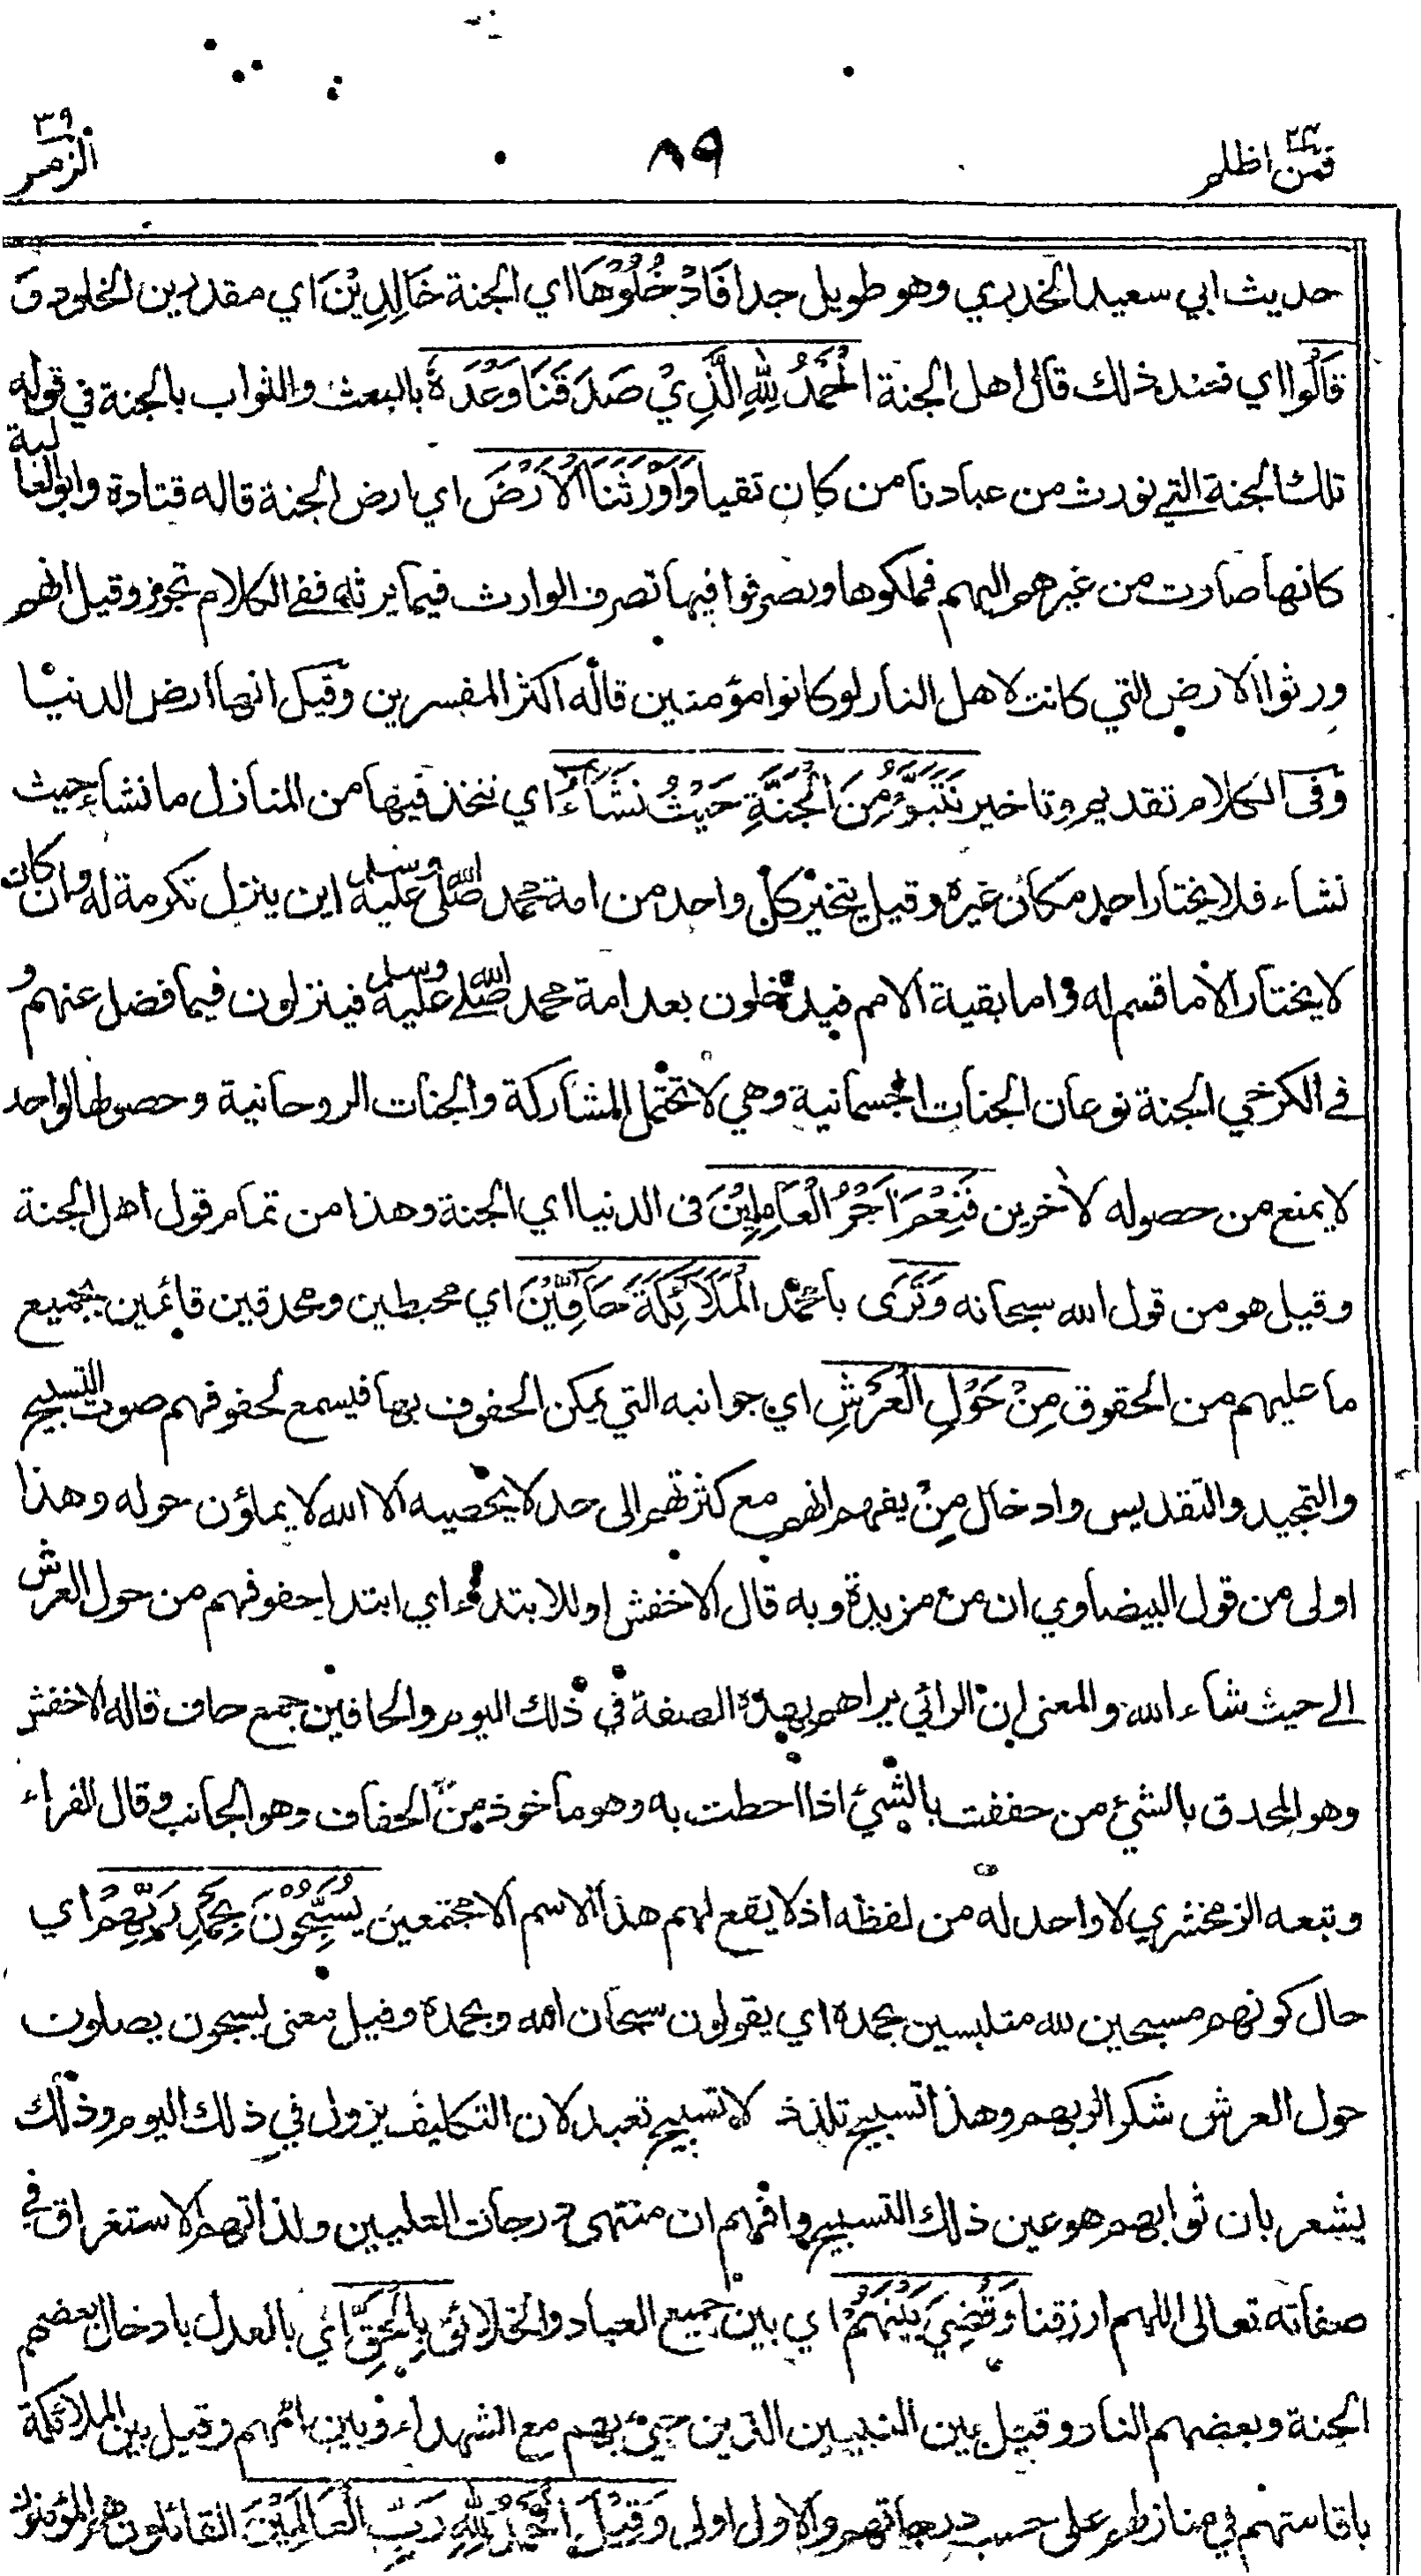 فمن اظلم ٢٤
٨٩
الزمر ٣٩
حديث ابي سعيد الخدري وهو طويل جدا فَادْخُلُوْهَا اي الجنة خَالِدِيْنَ اي مقدرين الخلود وَ
قَالُوا اي فعند ذلك قال اهل الجنة الْحَمْدُ لِلّٰهِ الَّذِيْ صَدَقَنَا وَعْدَهُ بالبعث والثواب بالجنة في قوله
تلك الجنة التي نورث من عبادنا من كان تقيا وَاَوْرَثَنَا الْاَرْضَ اي ارض الجنة قاله قتادة وابو العالية
كانها صارت من غيرهم اليهم فملكوها وتصرفوا فيها تصرف الوارث فيما يرثه ففي الكلام تجوز وقيل انهم
ورثوا الارض التي كانت لاهل النار لو كانوا مؤمنين قاله اكثر المفسرين وقيل انها ارض الدنيا
وفى الكلام تقديم وتاخير نَتَبَوَّءُ مِنَ الْجَنَّةِ حَيْثُ نَشَاءُ اي نتخذ فيها من المنازل ما نشاء حيث
نشاء فلا يختار احد مكان غيره وقيل يتخير كل واحد من امة محمد صلى الله عليه وسلم اين ينزل تكرمة له وان كان
لا يختار الا ما قسم له واما بقية الامم فيدخلون بعد امة محمد صلى الله عليه وسلم فينزلون فيما فضل عنهم و
في الكرخي الجنة نوعان الجنات الجسمانية وهي لا تحتمل المشاركة والجنات الروحانية وحصولها لواحد
لا يمنع من حصوله لاخرين فَنِعْمَ اَجْرُ الْعَامِلِيْنَ فى الدنيا اي الجنة وهذا من تمام قول اهل الجنة
وقيل هو من قول الله سبحانه وَتَرَى يا محمد الْمَلَائِكَةَ حَافِّيْنَ اي محيطين ومحدقين قائمين بجميع
ما عليهم من الحقوق مِنْ حَوْلِ الْعَرْشِ اي جوانبه التي يمكن الحفوف بها فيسمع لحفوفهم صوت التسبيح
والتمجيد والتقديس وادخال مِنْ يفهم انهم مع كثرتهم الى حد لا يحصيه الا الله لا يملؤن حوله وهذا
اولى من قول البيضاوي ان من مزيدة وبه قال الاخفش او للابتداء اي ابتداء حفوفهم من حول العرش
الى حيث شاء الله والمعنى ان الرائي يراهم بهذه الصفة في ذلك اليوم والحافين جمع حاف قاله الاخفش
وهو المحدق بالشئ من حففت بالشئ اذا احطت به وهو ماخوذ من الحفاف وهو الجانب وقال الفراء
وتبعه الزمخشري لا واحد له من لفظه اذ لا يقع لهم هذا الاسم الا مجتمعين يُسَبِّحُوْنَ بِحَمْدِ رَبِّهِمْ اي
حال كونهم مسبحين لله متلبسين بحمده اي يقولون سبحان الله وبحمده وقيل معنى يسبحون يصلون
حول العرش شكرا لربهم وهذا تسبيح تلذذ لا تسبيح تعبد لان التكليف يزول في ذلك اليوم وذلك
يشعر بان ثوابهم هو عين ذلك التسبيح وافهم ان منتهى درجات العليين ولذاتهم الاستغراق في
صفاته تعالى اللهم ارزقنا وَقُضِيَ بَيْنَهُمْ اي بين جميع العباد والخلائق بِالْحَقِّ اي بالعدل بادخال بعضهم
الجنة وبعضهم النار وقيل بين النبيين الذين جيئ بهم مع الشهداء وبين اممهم وقيل بين الملائكة
باقامتهم في منازلهم على حسب درجاتهم والاول اولى وَقِيْلَ الْحَمْدُ لِلّٰهِ رَبِّ الْعَالَمِيْنَ القائلون هم المؤمنون